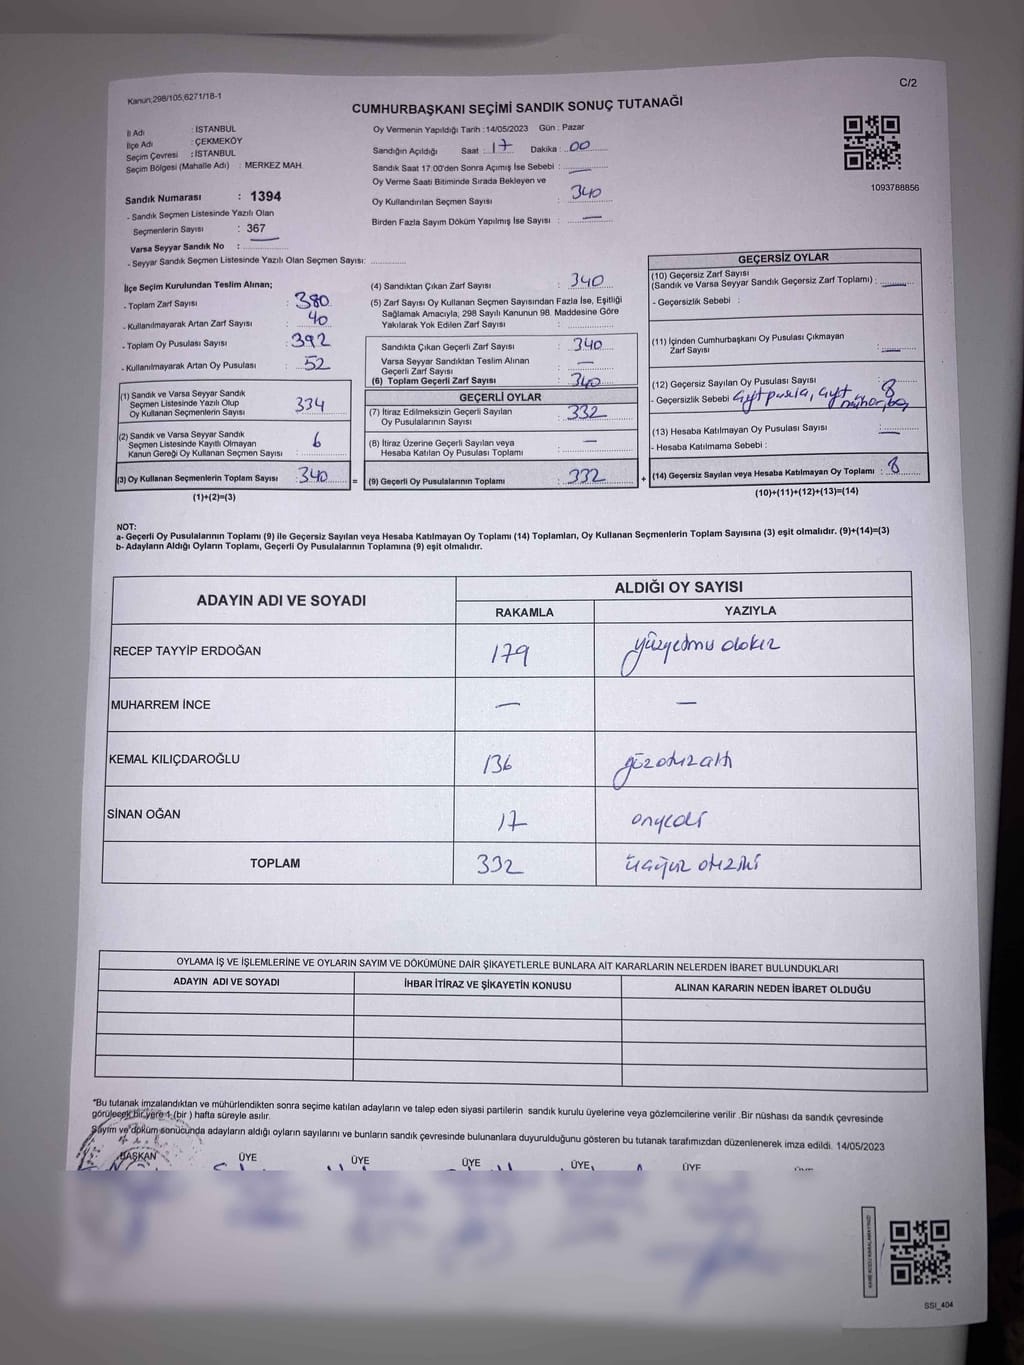 C/2
Kanun;298/105;6271/18-1
CUMHURBAŞKANI SEÇİMİ SANDIK SONUÇ TUTANAĞI
İl Adı : İSTANBUL
İlçe Adı : ÇEKMEKÖY
Seçim Çevresi : İSTANBUL
Seçim Bölgesi (Mahalle Adı) : MERKEZ MAH.
Sandık Numarası : 1394
- Sandık Seçmen Listesinde Yazılı Olan
Seçmenlerin Sayısı : 367
Varsa Seyyar Sandık No :
- Seyyar Sandık Seçmen Listesinde Yazılı Olan Seçmen Sayısı:
Oy Vermenin Yapıldığı Tarih : 14/05/2023 Gün : Pazar
Sandığın Açıldığı Saat : 17 Dakika : 00
Sandık Saat 17:00'den Sonra Açımış İse Sebebi : —
Oy Verme Saati Bitiminde Sırada Bekleyen ve
Oy Kullandırılan Seçmen Sayısı : 340
Birden Fazla Sayım Döküm Yapılmış İse Sayısı : —
1093788856
İlçe Seçim Kurulundan Teslim Alınan;
- Toplam Zarf Sayısı : 380
- Kullanılmayarak Artan Zarf Sayısı : 40
- Toplam Oy Pusulası Sayısı : 392
- Kullanılmayarak Artan Oy Pusulası : 52
(1) Sandık ve Varsa Seyyar Sandık
Seçmen Listesinde Yazılı Olup
Oy Kullanan Seçmenlerin Sayısı : 334
(2) Sandık ve Varsa Seyyar Sandık
Seçmen Listesinde Kayıtlı Olmayan
Kanun Gereği Oy Kullanan Seçmen Sayısı : 6
(3) Oy Kullanan Seçmenlerin Toplam Sayısı : 340
(1)+(2)=(3)
(4) Sandıktan Çıkan Zarf Sayısı : 340
(5) Zarf Sayısı Oy Kullanan Seçmen Sayısından Fazla İse, Eşitliği
Sağlamak Amacıyla, 298 Sayılı Kanunun 98. Maddesine Göre
Yakılarak Yok Edilen Zarf Sayısı :
Sandıkta Çıkan Geçerli Zarf Sayısı : 340
Varsa Seyyar Sandıktan Teslim Alınan
Geçerli Zarf Sayısı : —
(6) Toplam Geçerli Zarf Sayısı : 340
GEÇERLİ OYLAR
(7) İtiraz Edilmeksizin Geçerli Sayılan
Oy Pusulalarının Sayısı : 332
(8) İtiraz Üzerine Geçerli Sayılan veya
Hesaba Katılan Oy Pusulası Toplamı : —
= (9) Geçerli Oy Pusulalarının Toplamı : 332
GEÇERSİZ OYLAR
(10) Geçersiz Zarf Sayısı
(Sandık ve Varsa Seyyar Sandık Geçersiz Zarf Toplamı) : —
- Geçersizlik Sebebi :
(11) İçinden Cumhurbaşkanı Oy Pusulası Çıkmayan
Zarf Sayısı : —
(12) Geçersiz Sayılan Oy Pusulası Sayısı : 8
- Geçersizlik Sebebi
(13) Hesaba Katılmayan Oy Pusulası Sayısı : —
- Hesaba Katılmama Sebebi :
+ (14) Geçersiz Sayılan veya Hesaba Katılmayan Oy Toplamı : 8
(10)+(11)+(12)+(13)=(14)
NOT:
a- Geçerli Oy Pusulalarının Toplamı (9) ile Geçersiz Sayılan veya Hesaba Katılmayan Oy Toplamı (14) Toplamları, Oy Kullanan Seçmenlerin Toplam Sayısına (3) eşit olmalıdır. (9)+(14)=(3)
b- Adayların Aldığı Oyların Toplamı, Geçerli Oy Pusulalarının Toplamına (9) eşit olmalıdır.
ADAYIN ADI VE SOYADI ALDIĞI OY SAYISI
RAKAMLA YAZIYLA
RECEP TAYYİP ERDOĞAN 179 yüzyetmiş dokuz
MUHARREM İNCE — —
KEMAL KILIÇDAROĞLU 136 yüzotuzaltı
SİNAN OĞAN 17 onyedi
TOPLAM 332 üçyüz otuziki
OYLAMA İŞ VE İŞLEMLERİNE VE OYLARIN SAYIM VE DÖKÜMÜNE DAİR ŞİKAYETLERLE BUNLARA AİT KARARLARIN NELERDEN İBARET BULUNDUKLARI
ADAYIN ADI VE SOYADI İHBAR İTİRAZ VE ŞİKAYETİN KONUSU ALINAN KARARIN NEDEN İBARET OLDUĞU
*Bu tutanak imzalandıktan ve mühürlendikten sonra seçime katılan adayların ve talep eden siyasi partilerin sandık kurulu üyelerine veya gözlemcilerine verilir .Bir nüshası da sandık çevresinde
görülecek bir yere 1 (bir ) hafta süreyle asılır.
Sayım ve döküm sonucunda adayların aldığı oyların sayılarını ve bunların sandık çevresinde bulunanlara duyurulduğunu gösteren bu tutanak tarafımızdan düzenlenerek imza edildi. 14/05/2023
BAŞKAN ÜYE ÜYE ÜYE ÜYE ÜYE
SSI_404